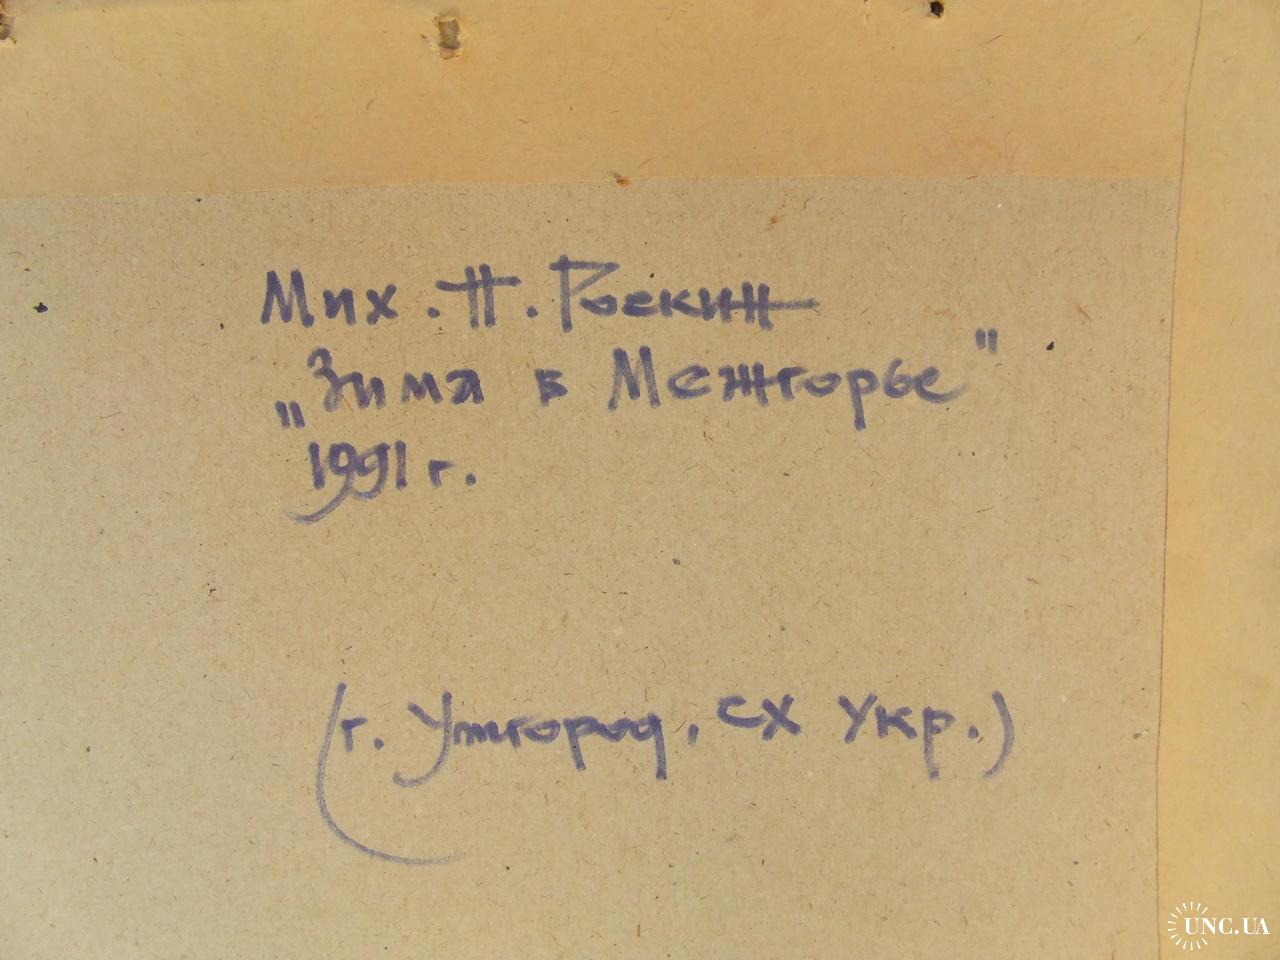 Мих. П. Роскин
„Зима в Межгорье"
1991 г.
(г. Ужгород, СХ Укр.)
UNC.UA